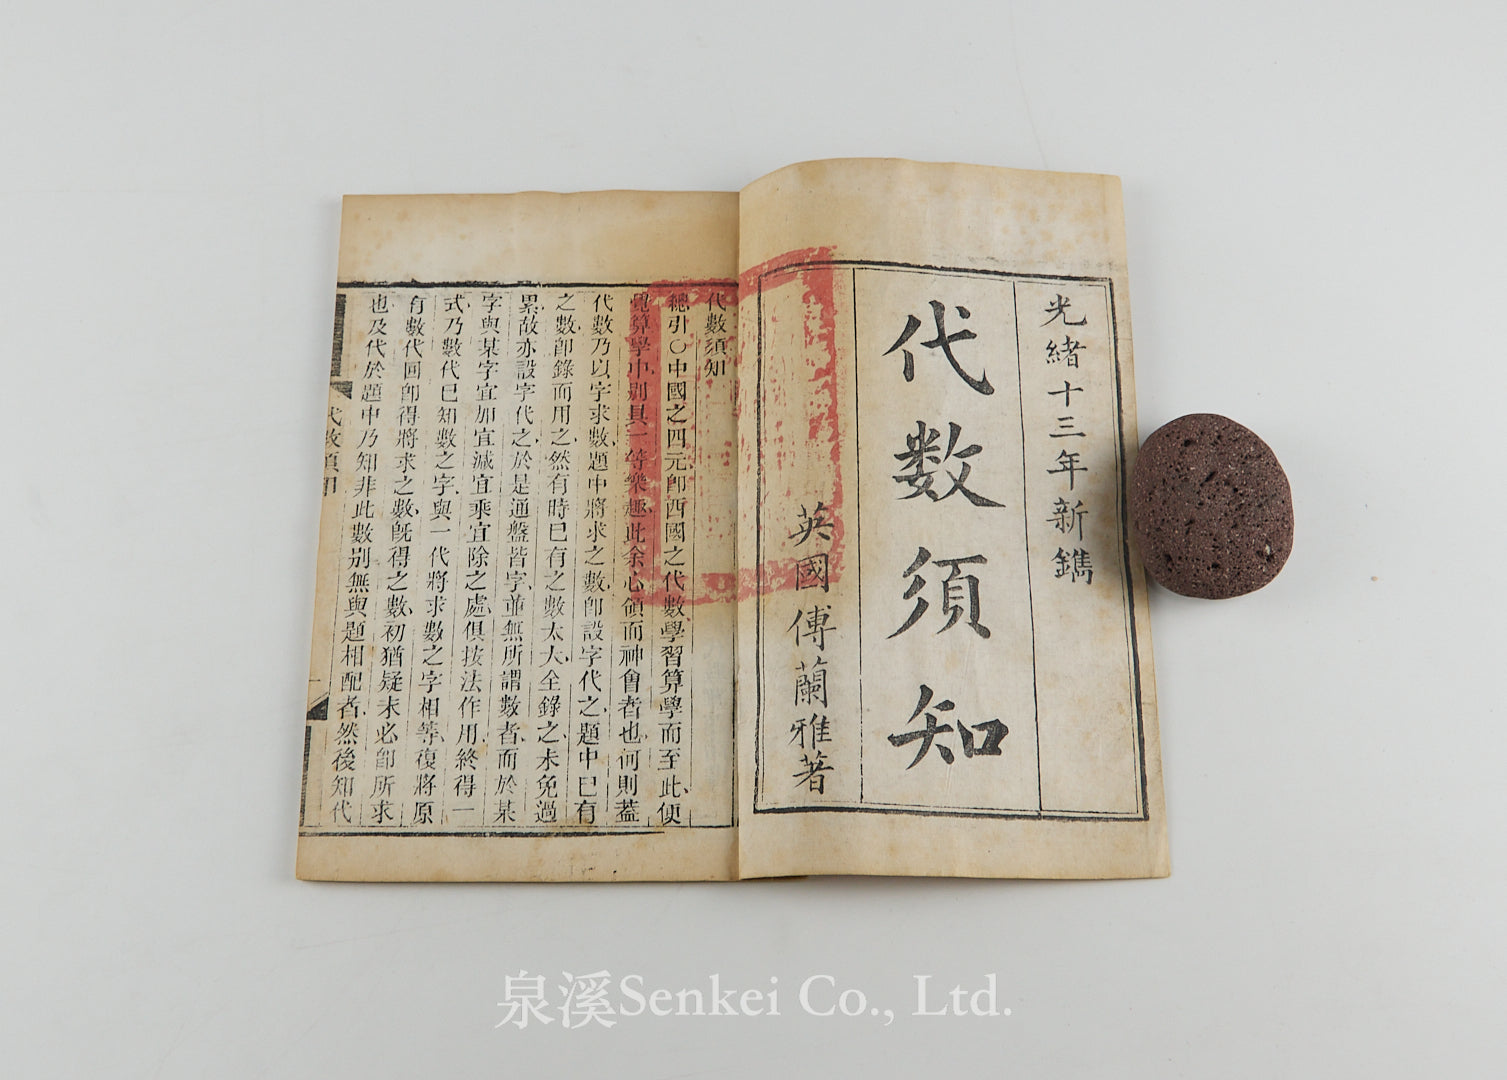 光緒十三年新鐫
代數須知
英國傅蘭雅著
代數須知
總引〇中國之四元卽西國之代數學習算學而至此便
覺算學中別具一等樂趣此余心領而神會者也何則蓋
代數乃以字求數題中將求之數卽設字代之題中巳有
之數卽錄而用之然有時巳有之數太大全錄之未免過
累故亦設字代之於是通盤皆字並無所謂數者而於某
字與某字宜加宜減宜乘宜除之處俱按法作用終得一
式乃數代巳知數之字與一代將求數之字相等復將原
有數代囘卽得將求之數旣得之數初猶疑未必卽所求
也及代於題中乃知非此數別無與題相配者然後知代
代數須知
一
泉溪Senkei Co., Ltd.